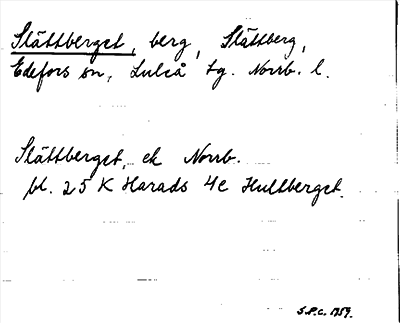 Slättberget, berg, Slättberg,
Edefors sn, Luleå tg. Norrb. l.
Slättberget, ek Norrb.
bl. 25 K Harads 4c Hultberget.
S.P.C. 1959.